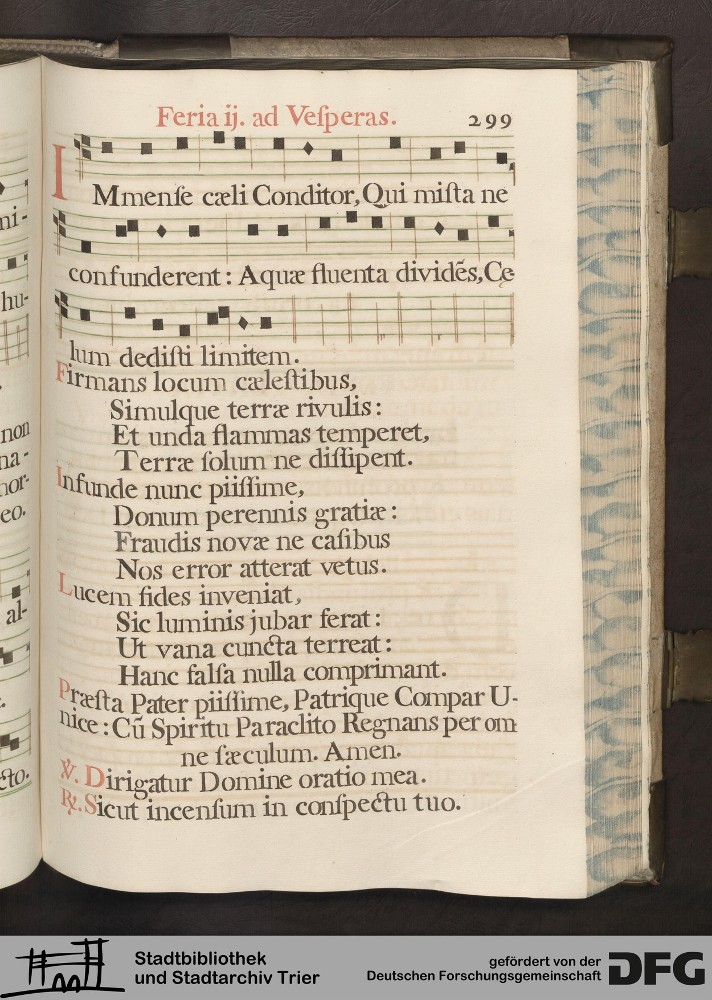 Feria ij. ad Veſperas. 299
IMmenſe cæli Conditor, Qui miſta ne
confunderent : Aquæ fluenta dividēs, Cę
lum dediſti limitem.
Firmans locum cæleſtibus,
Simulque terræ rivulis :
Et unda flammas temperet,
Terræ ſolum ne diſſipent.
Infunde nunc piiſſime,
Donum perennis gratiæ :
Fraudis novæ ne caſibus
Nos error atterat vetus.
Lucem fides inveniat,
Sic luminis jubar ferat :
Ut vana cuncta terreat :
Hanc falſa nulla comprimant.
Præſta Pater piiſſime, Patrique Compar U-
nice : Cū Spiritu Paraclito Regnans per om
ne ſæculum. Amen.
℣. Dirigatur Domine oratio mea.
℟. Sicut incenſum in conſpectu tuo.
ni-
hu-
non
na-
nor-
eo.
al-
cto.
Stadtbibliothek
und Stadtarchiv Trier
gefördert von der
Deutschen Forschungsgemeinschaft
DFG